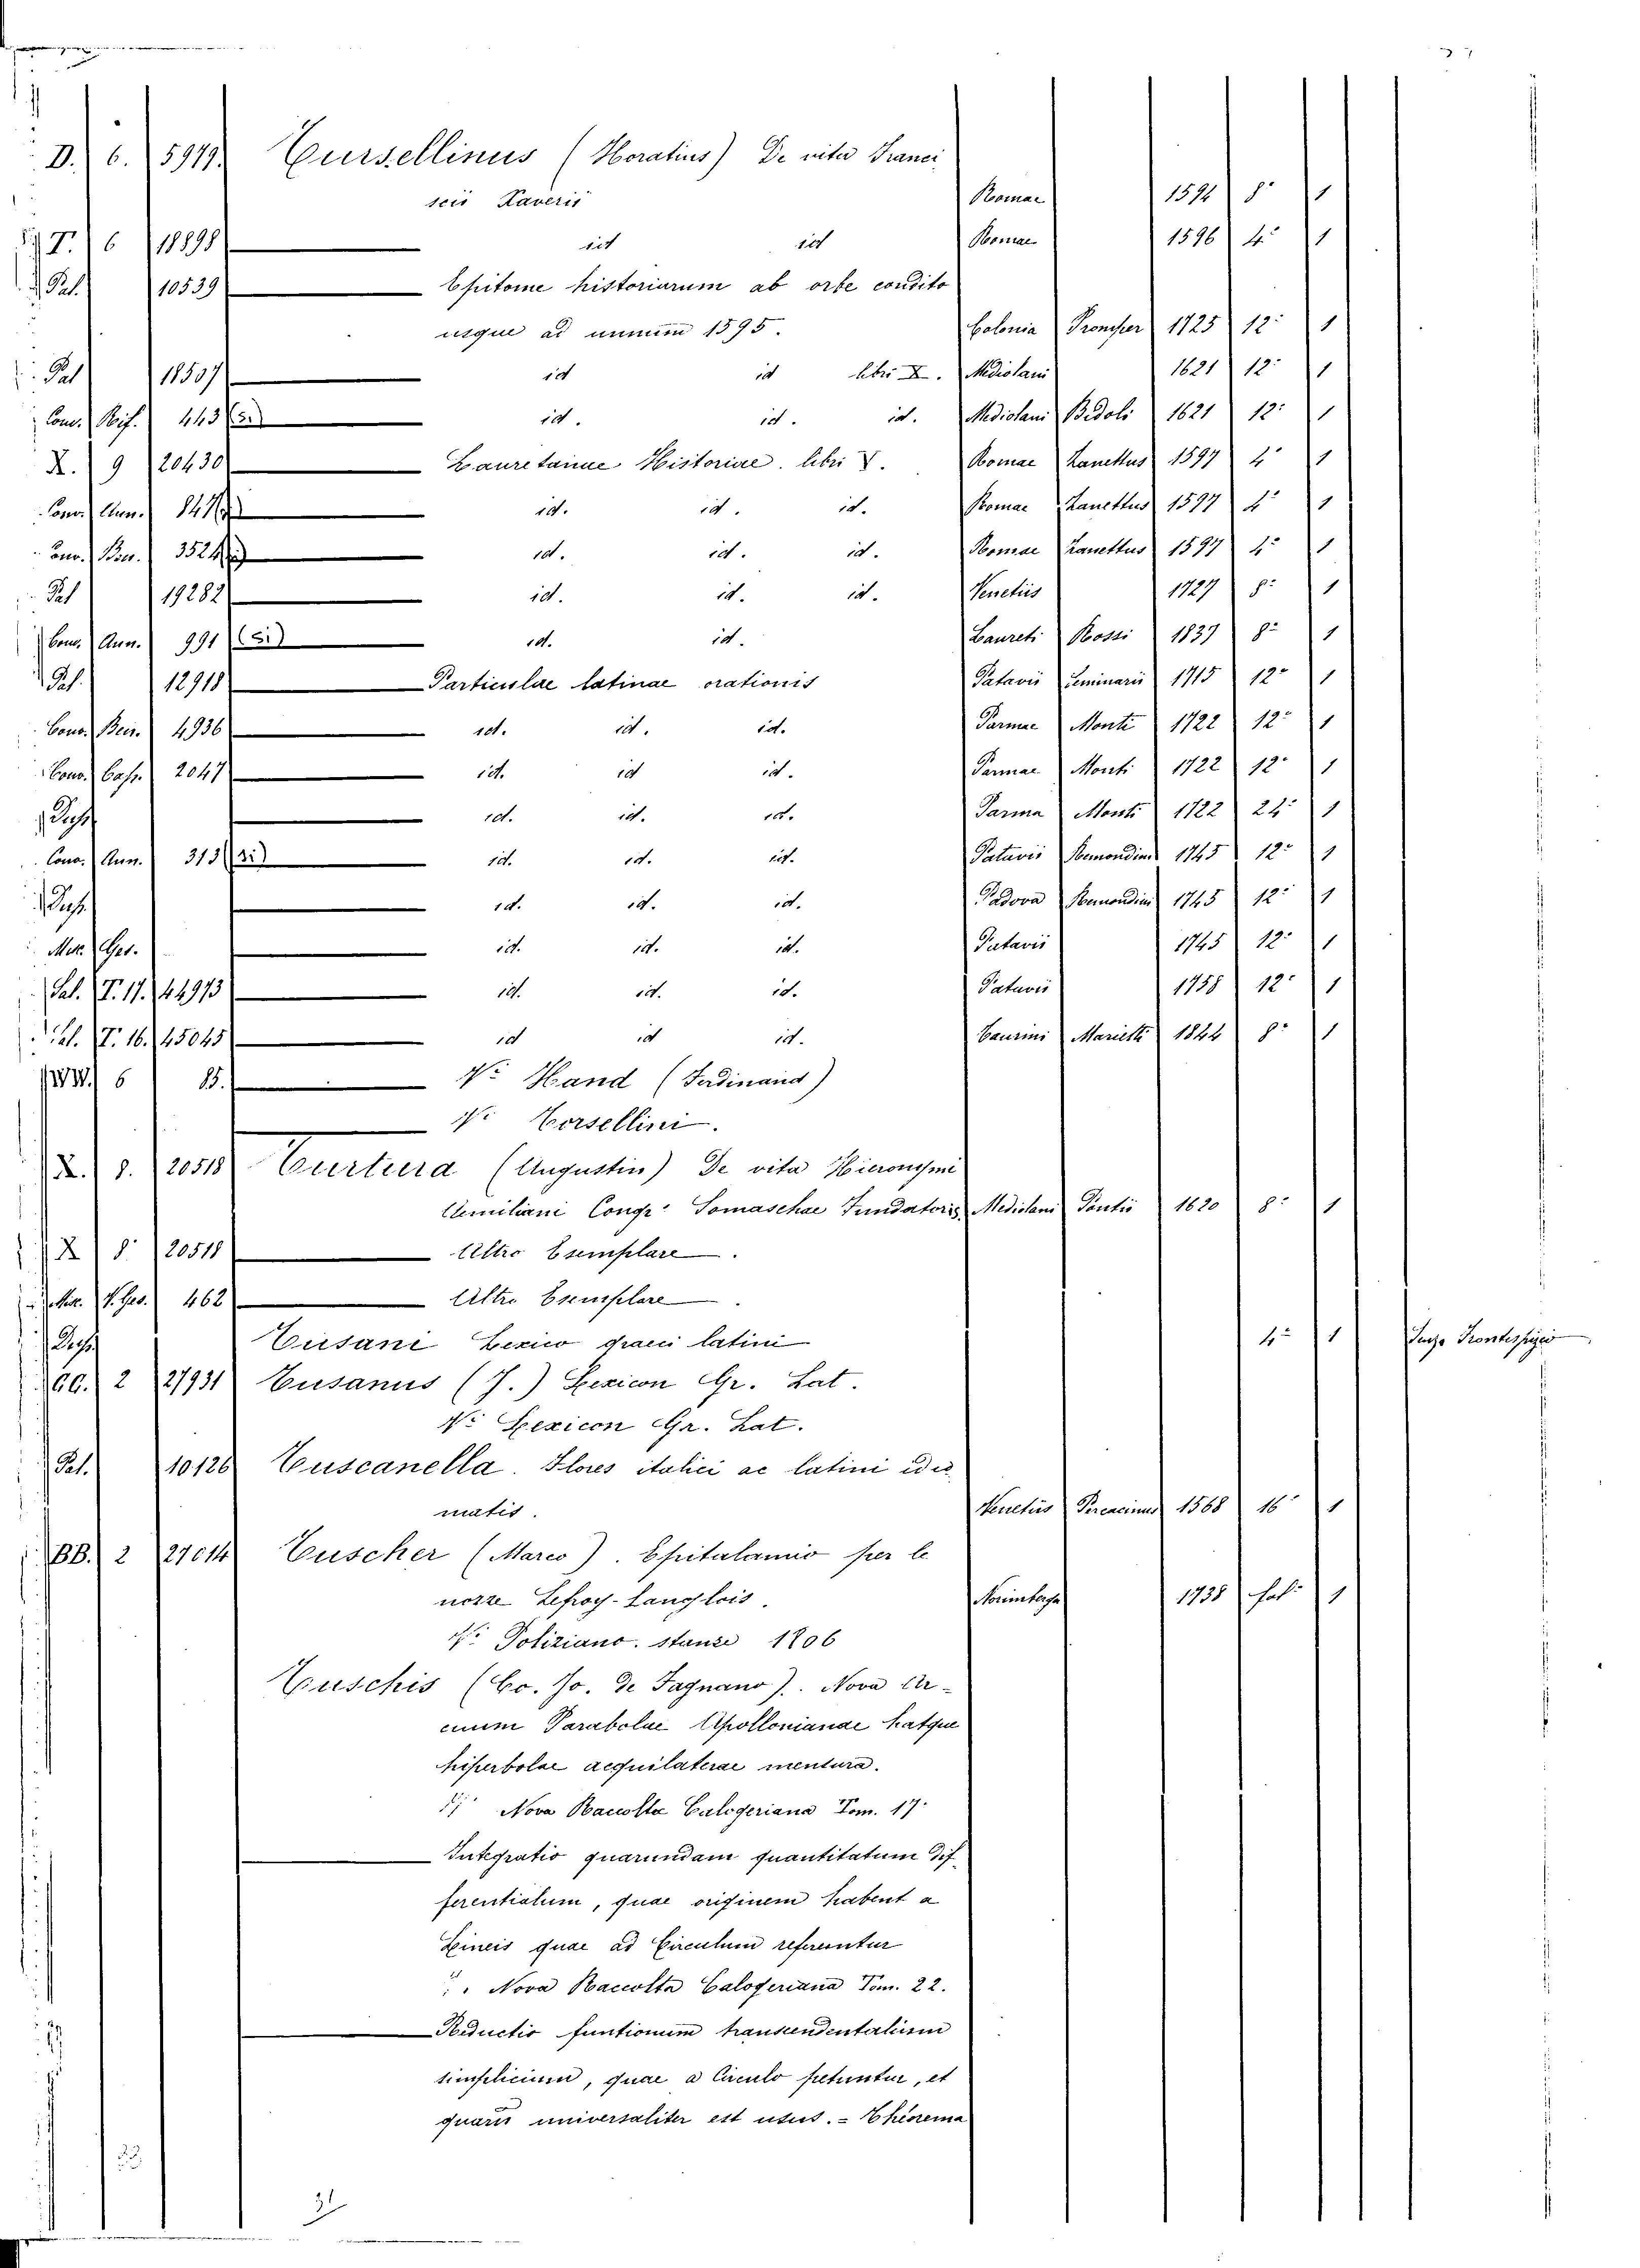 D. 6. 5979. Cursellinus (Horatius) De vita Franci
scis Xaveris Romae 1594 8° 1
T. 6 18898 id id Romae 1596 4° 1
Pal. 10539 Epitome historiarum ab orbe condito
usque ad annum 1595. Colonia Promper 1725 12° 1
Pal 18507 id id libri X. Mediolani 1621 12° 1
Conv. Rif. 443 (5i) id. id. id. Mediolani Bidoli 1621 12° 1
X. 9 20430 Lauretanae Historiae. libri V. Romae Zanettus 1597 4° 1
Conv. Ann. 847 id. id. id. Romae Zanettus 1597 4° 1
3524 id. id. id. Romae Zanettus 1597 4° 1
Pal 19282 id. id. id. Venetiis 1727 8° 1
Conv. Ann. 991 (5i) id. id. Laureti Rossi 1837 8° 1
Pal. 12918 Particulae latinae orationis Patavii Seminarii 1715 12° 1
Conv. Ben. 4936 id. id. id. Parmae Monti 1722 12° 1
Conv. Capp. 2047 id. id id. Parmae Monti 1722 12° 1
id. id. id. Parma Monti 1722 24° 1
Conv. Ann. 313 (3i) id. id. id. Patavii Remondini 1745 12° 1
id. id. id. Padova Remondini 1745 12° 1
Ges. id. id. id. Patavii 1745 12° 1
Sal. T. 17. 44973 id. id. id. Patavii 1758 12° 1
Sal. T. 16. 45045 id id id. Taurini Marietti 1844 8° 1
6 85. Vi Hand (Ferdinand)
Vi Torsellini.
X. 8. 20518 Curtura (Augustin) De vita Hieronymi
Aemiliani Congr. Somaschae Fundatoris Mediolani Pontii 1620 8° 1
X 8. 20518 Altro Esemplare.
V. Ges. 462 Altro Esemplare.
Cusani Lexico graeci latini 4° 1 Senza Frontespizio
2 27931 Cusanus (J.) Lexicon Gr. Lat.
Vi Lexicon Gr. Lat.
Pal. 10126 Cuscanella. Flores italici ac latini idio
matis. Venetiis 1568 16° 1
BB. 2 27014 Cuscher (Marco). Epitalamio per le
nozze Lefroy-Langlois. Norimberga 1738 fol. 1
Vi Poliziano. stanze 1806
Cuschis (Co. Jo. De Fagnano). Nova Ar-
cuum Parabolae Apollonianae hatque
hiperbolae aequilaterae mensura.
Vi Nova Raccolta Calogeriana Tom. 17.
Integratio quarundam quantitatum dif
ferentialium, quae originem habent a
Lineis quae ad Circulum referuntur
Vi. Nova Raccolta Calogeriana Tom. 22.
Reductio funtionum transcendentalium
simplicium, quae a Circulo petuntur, et
quarus universaliter est usus. = Theorema
31